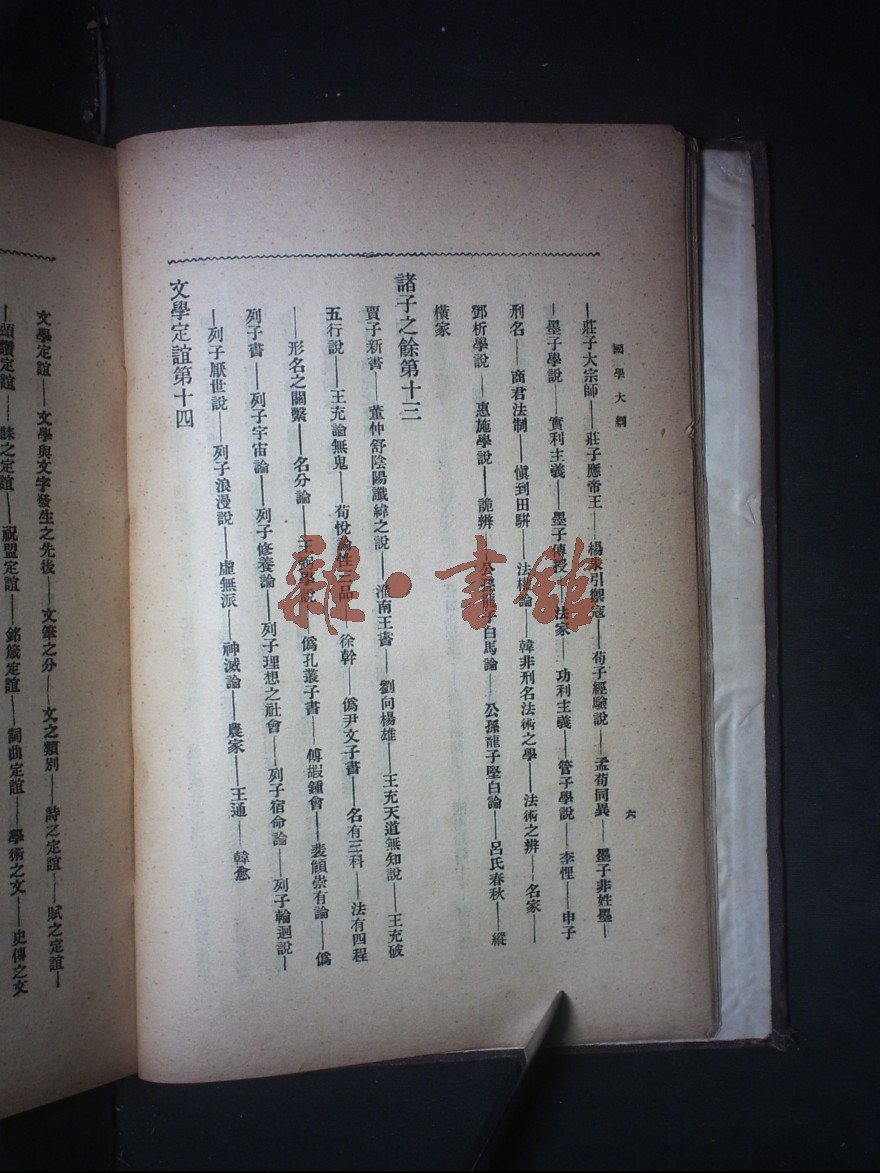 國學大綱
六
—莊子大宗師——莊子應帝王——楊朱引禦寇——荀子經驗說——孟荀同異——墨子非姓墨—
—墨子學說——實利主義——墨子傳授——法家——功利主義——管子學說——李悝——申子
刑名——商君法制——愼到田騈——法權論——韓非刑名法術之學——法術之辨——名家——
鄧析學說——惠施學說——詭辨——公孫龍子白馬論——公孫龍子堅白論——呂氏春秋——縱
橫家
諸子之餘第十三
賈子新書——董仲舒陰陽讖緯之說——淮南王書——劉向楊雄——王充天道無知說——王充破
五行說——王充論無鬼——荀悅論性三品——徐幹——僞尹文子書——名有三科——法有四程
—形名之關繫——名分論——王弼學說——僞孔叢子書——傅嘏鍾會——裴頠崇有論——僞
列子書——列子宇宙論——列子修養論——列子理想之社會——列子宿命論——列子輪迴說—
—列子厭世說——列子浪漫說——虛無派——神滅論——農家——王通——韓愈
文學定誼第十四
文學定誼——文學與文字發生之先後——文筆之分——文之類別——詩之定誼——賦之定誼—
—頌讚定誼——誄之定誼——祝盟定誼——銘箴定誼——詞曲定誼——學術之文——史傳之文
雜·書館